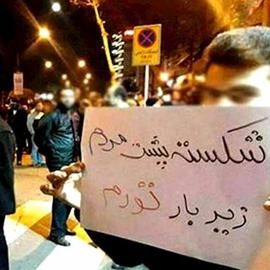 شکسته پشت مردم
زیر بار تورم